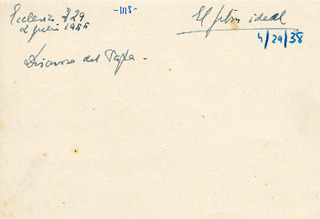 Ecclesia 729
2 julio 1955
-1115-
El film ideal
4/29/38
Discurso del Papa.